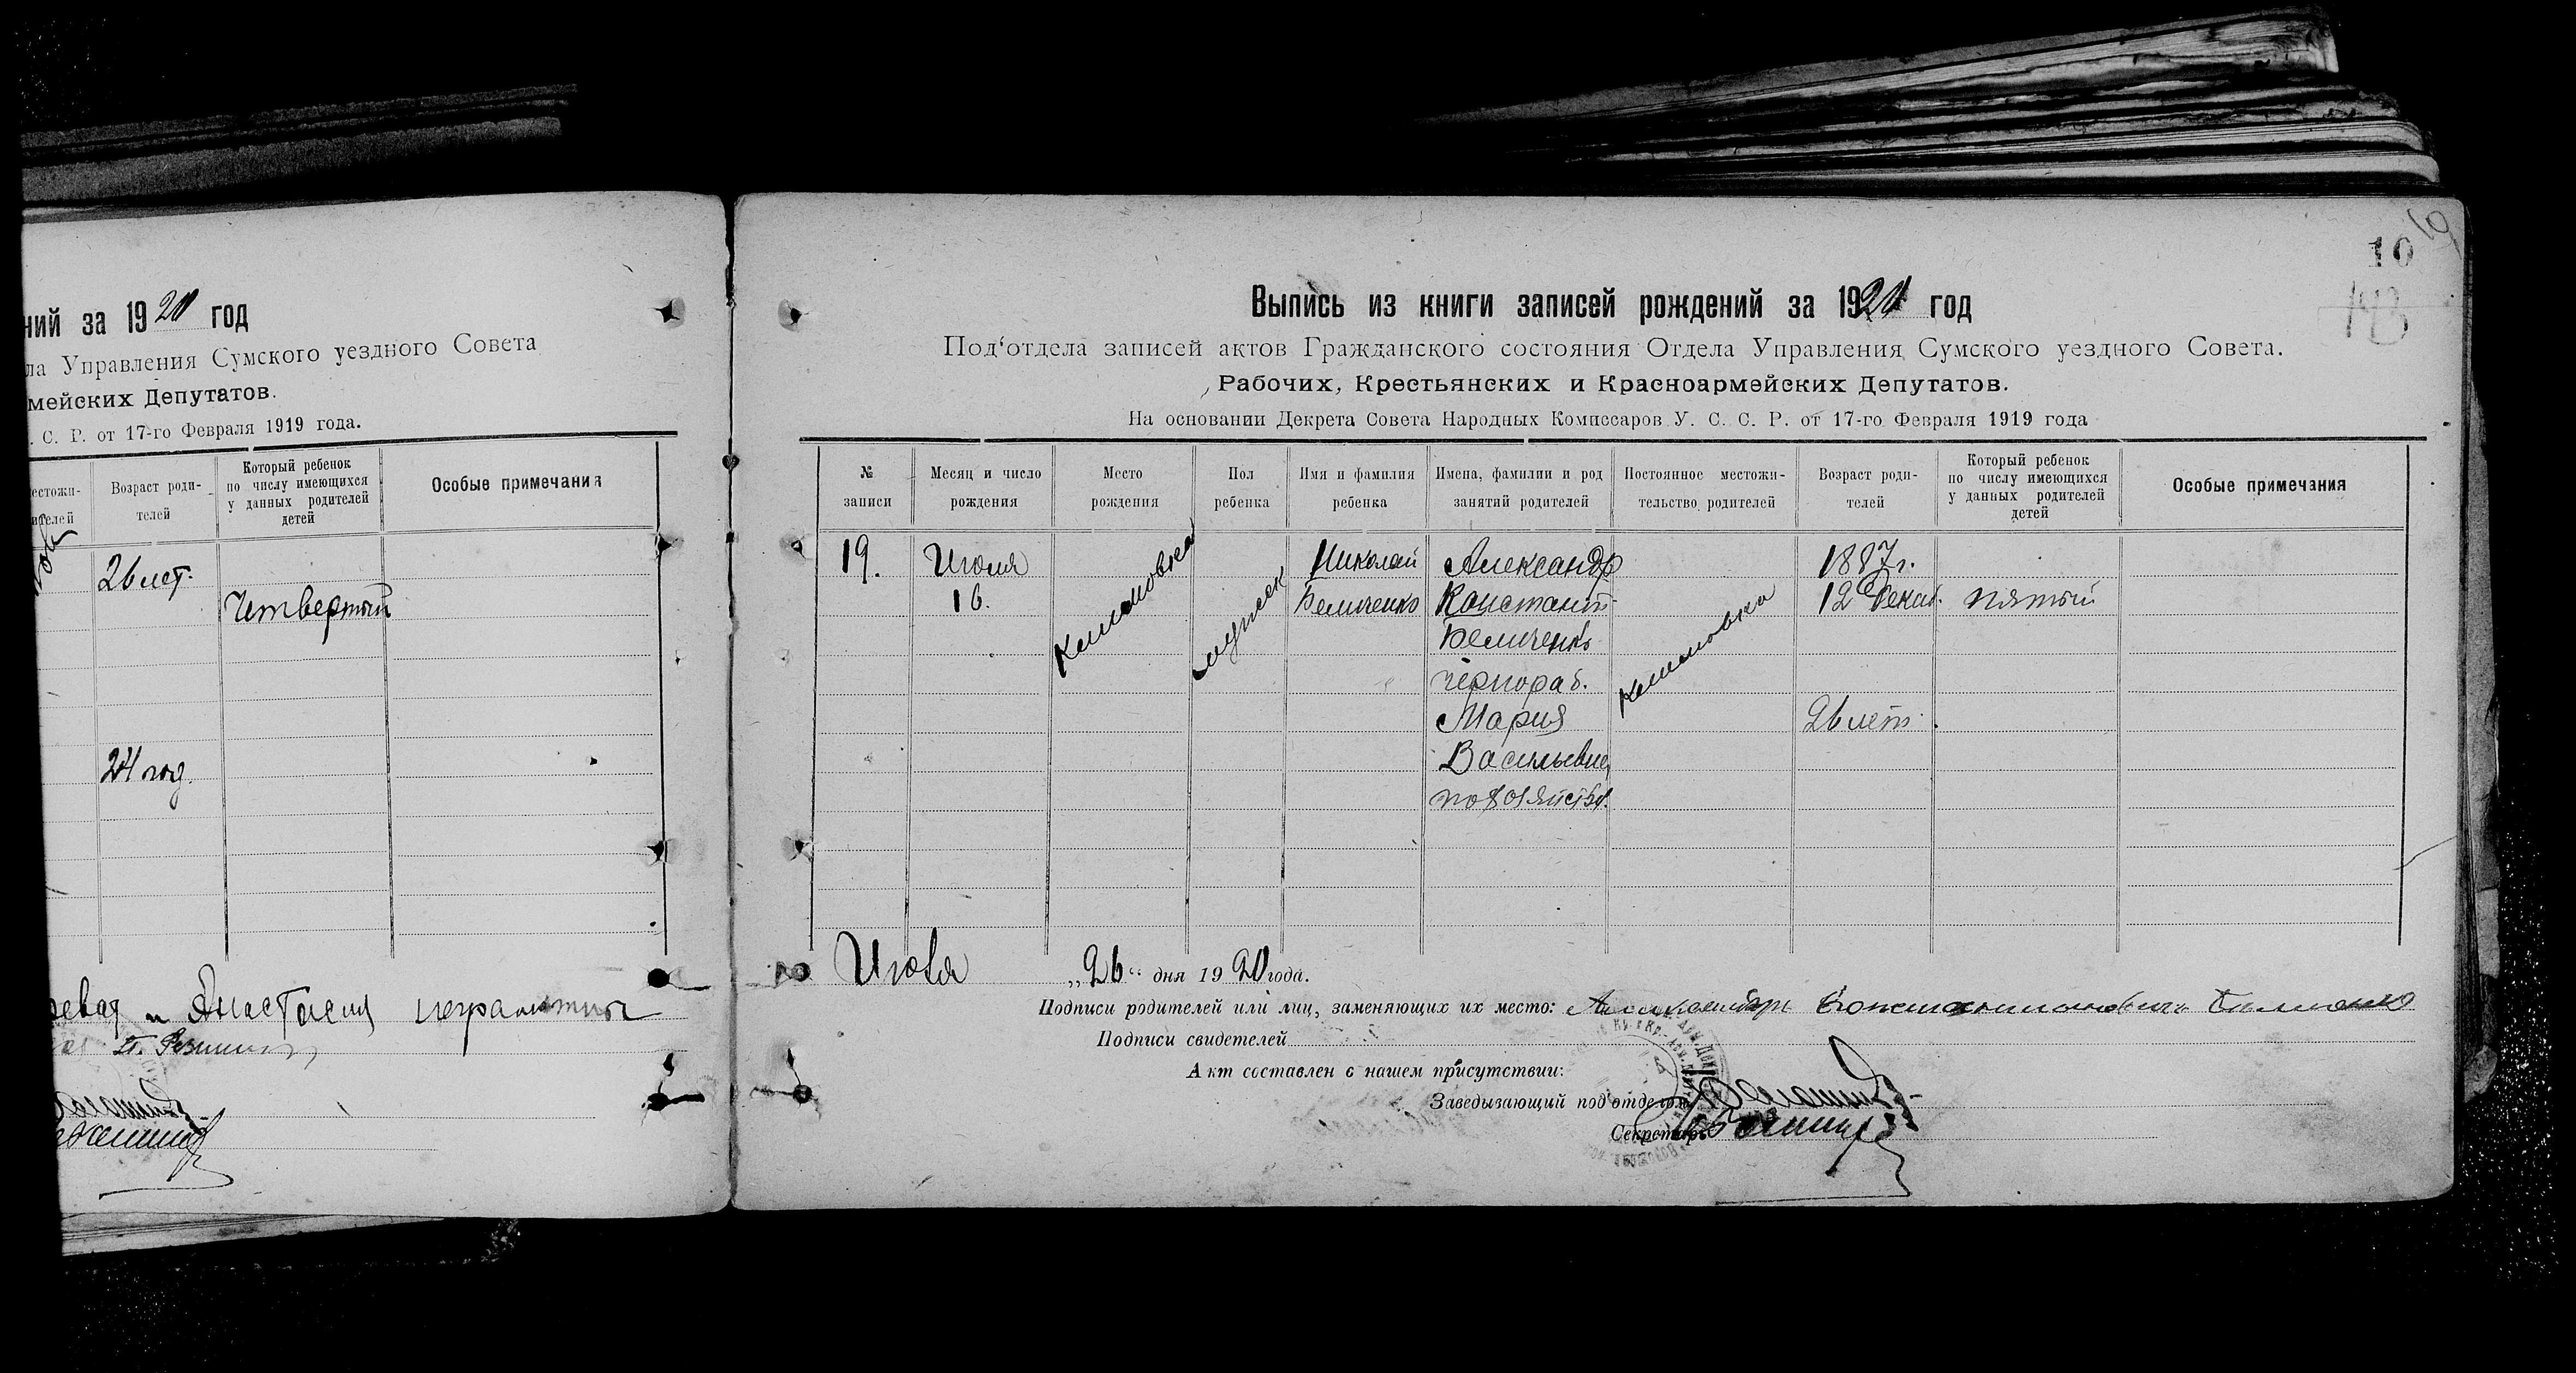 ний за 1920 год
ла Управления Сумского уездного Совета
мейских Депутатов.
. С. Р. от 17-го Февраля 1919 года.
естожи-
ителей
Возраст роди-
телей
Который ребенок
по числу имеющихся
у данных родителей
детей
Особые примечания
26 лет.
Четвертый
24 год.
евая и Анастасия неграмотны
10
Выпись из книги записей рождений за 1920 год
Под'отдела записей актов Гражданского состояния Отдела Управления Сумского уездного Совета.
Рабочих, Крестьянских и Красноармейских Депутатов.
На основании Декрета Совета Народных Комиссаров У. С. С. Р. от 17-го Февраля 1919 года
№
записи
Месяц и число
рождения
Место
рождения
Пол
ребенка
Имя и фамилия
ребенка
Имена, фамилии и род
занятий родителей
Постоянное местожи-
тельство родителей
Возраст роди-
телей
Который ребенок
по числу имеющихся
у данных родителей
детей
Особые примечания
19. Июля Николай Александр 1887 г.
16. Беличенко Констант. 12 Декаб. пятый
мужеск
Беличенко
чернораб.
Мария 26 лет.
Васильевна
по хозяйств.
Июля „26“ дня 1920 года.
Подписи родителей или лиц, заменяющих их место: Александръ Константиновичъ
Подписи свидетелей
Акт составлен в нашем присутствии:
Заведывающий под'отделом
Секретарь